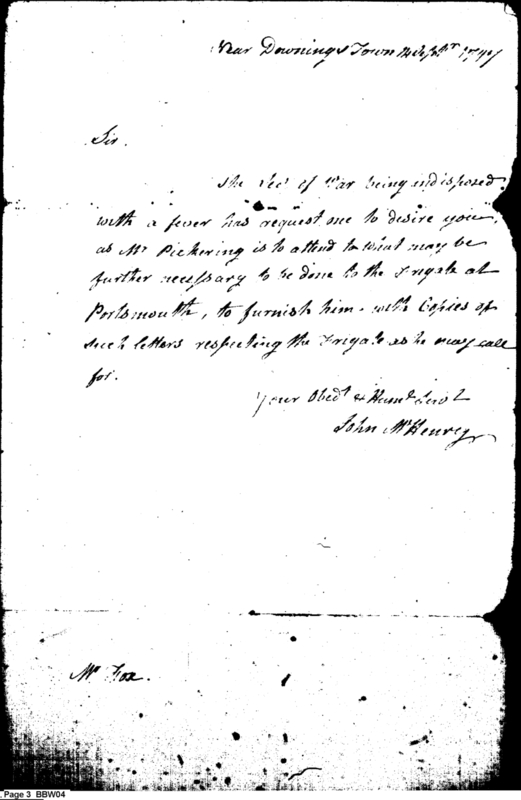 Near Downings Town 12 Septr. 1797
Sir.
The Secy of War being indisposed
with a fever has request me to desire you,
as Mr Pickering is to attend to what may be
further necessary to be done to the Frigate at
Portsmouth, to furnish him with Copies of
such letters respecting the Frigate as he may call
for.
Your Obedt & Humb Servt
John McHenry
Mr Fox.
. Page 3 BBW04